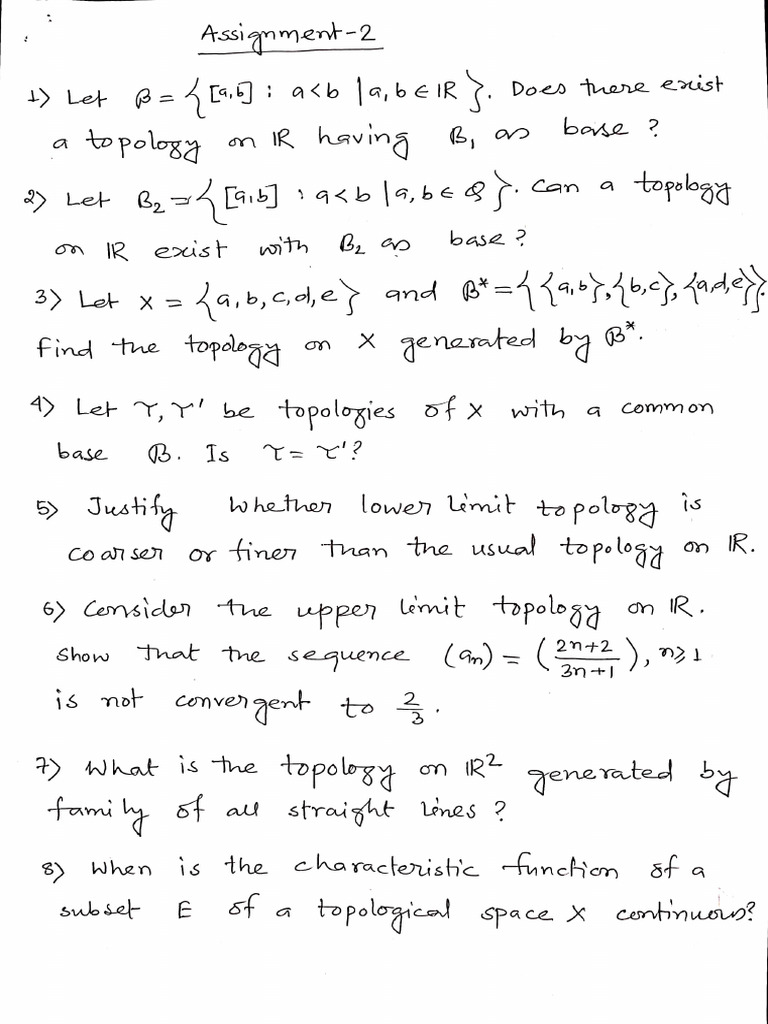 Assignment-2
1) Let β = { [a,b] : a<b | a, b ∈ IR }. Does there exist
a topology on IR having β₁ as base ?
2) Let β₂ = { [a,b] : a<b | a, b ∈ Q }. Can a topology
on IR exist with β₂ as base ?
3) Let X = {a, b, c, d, e} and β* = { {a,b}, {b,c}, {a,d,e} }.
Find the topology on X generated by β*.
4) Let τ, τ' be topologies of X with a common
base β. Is τ = τ' ?
5) Justify whether lower limit topology is
coarser or finer than the usual topology on IR.
6) Consider the upper limit topology on IR.
Show that the sequence (aₙ) = ( (2n+2)/(3n+1) ), n ≥ 1
is not convergent to 2/3.
7) What is the topology on IR² generated by
family of all straight lines ?
8) When is the characteristic function of a
subset E of a topological space X continuous?